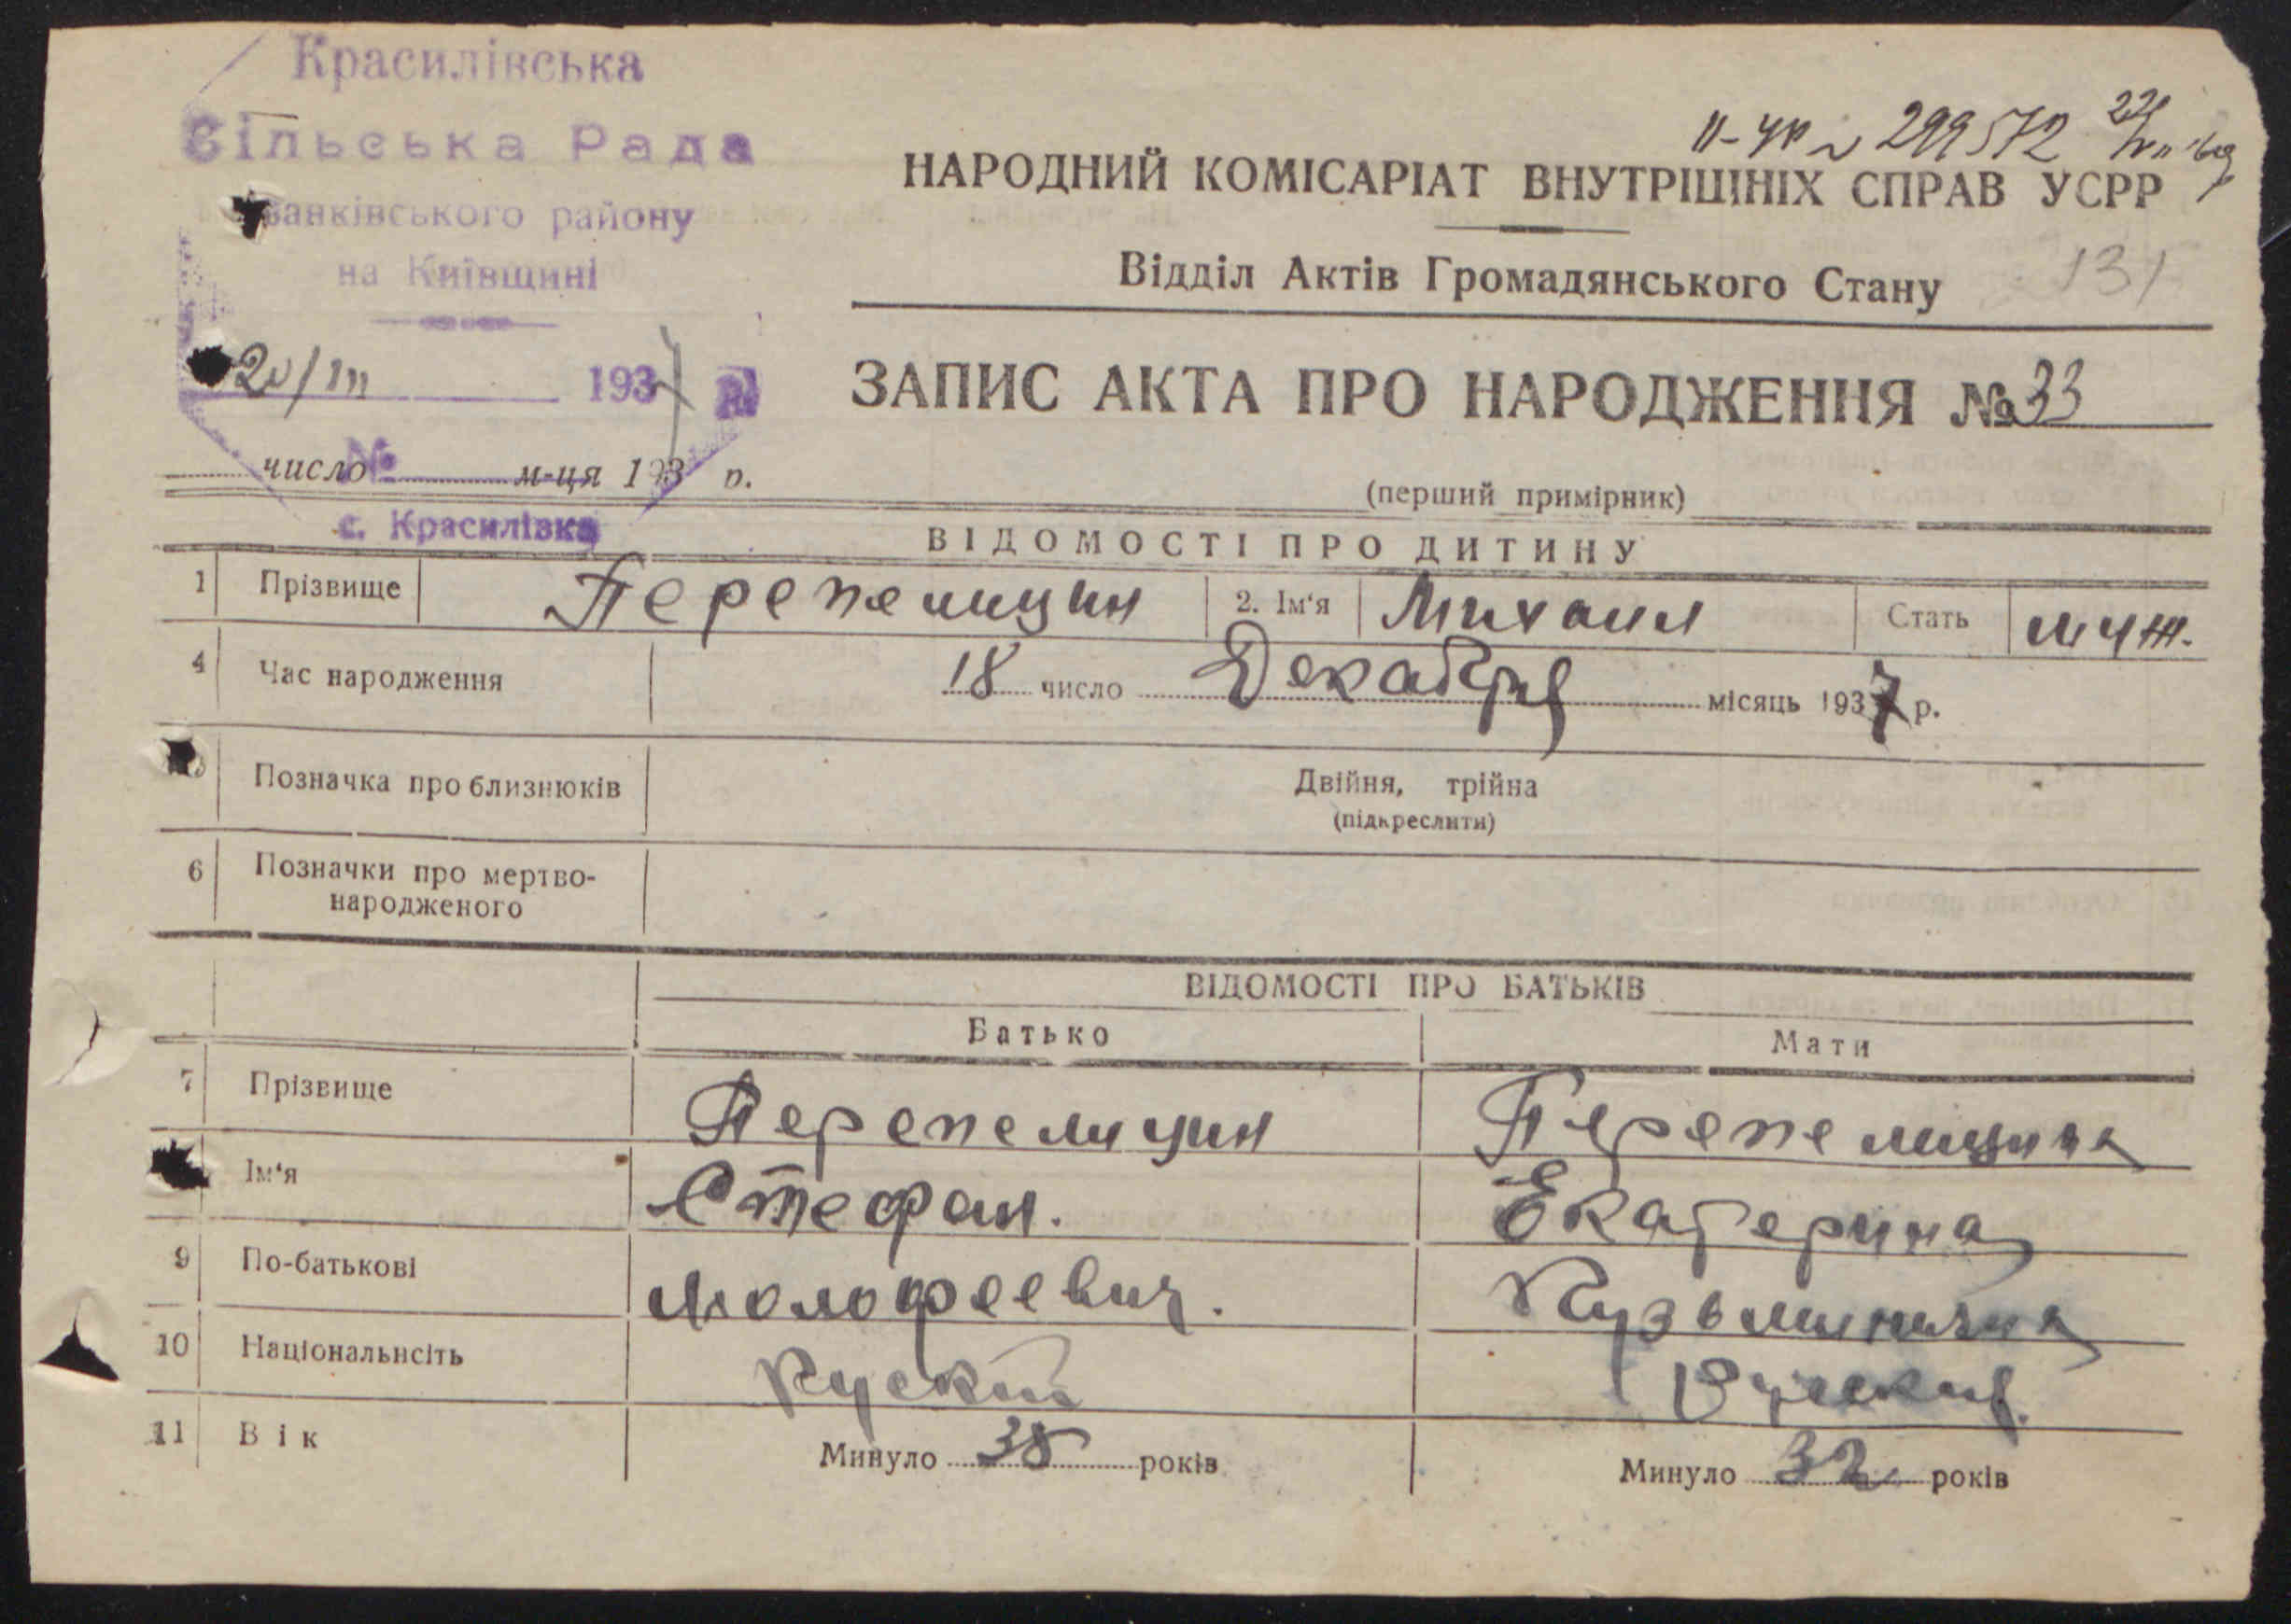 Красилівська
Сільська Рада
Іванківського району
на Київщині
20/III 1937 р.
№
число м-ця 193 р.
с. Красилівка
II-УР № 299572
НАРОДНИЙ КОМІСАРІАТ ВНУТРІШНІХ СПРАВ УСРР
Відділ Актів Громадянського Стану
131
ЗАПИС АКТА ПРО НАРОДЖЕННЯ № 33
(перший примірник)
ВІДОМОСТІ ПРО ДИТИНУ
1 Прізвище Перепелицин 2. Ім'я Михаил Стать муж.
4 Час народження 18 число Декабря місяць 1937 р.
Позначка про близнюків Двійня, трійна
(підкреслити)
6 Позначки про мертво-
народженого
ВІДОМОСТІ ПРО БАТЬКІВ
Батько Мати
7 Прізвище Перепелицин Перепелицина
Ім'я Стефан. Екатерина
9 По-батькові Молофеевич. Кузьминична
10 Національнсіть Руский Руская
11 Вік Минуло 38 років Минуло 32 років